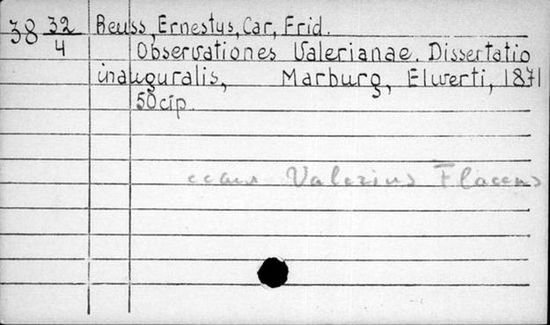 38 32/4 Reuss, Ernestus, Car, Frid.
Observationes Valerianae. Dissertatio
inauguralis, Marburg, Elwerti, 1871
50 cip.
Valerius Flaccus